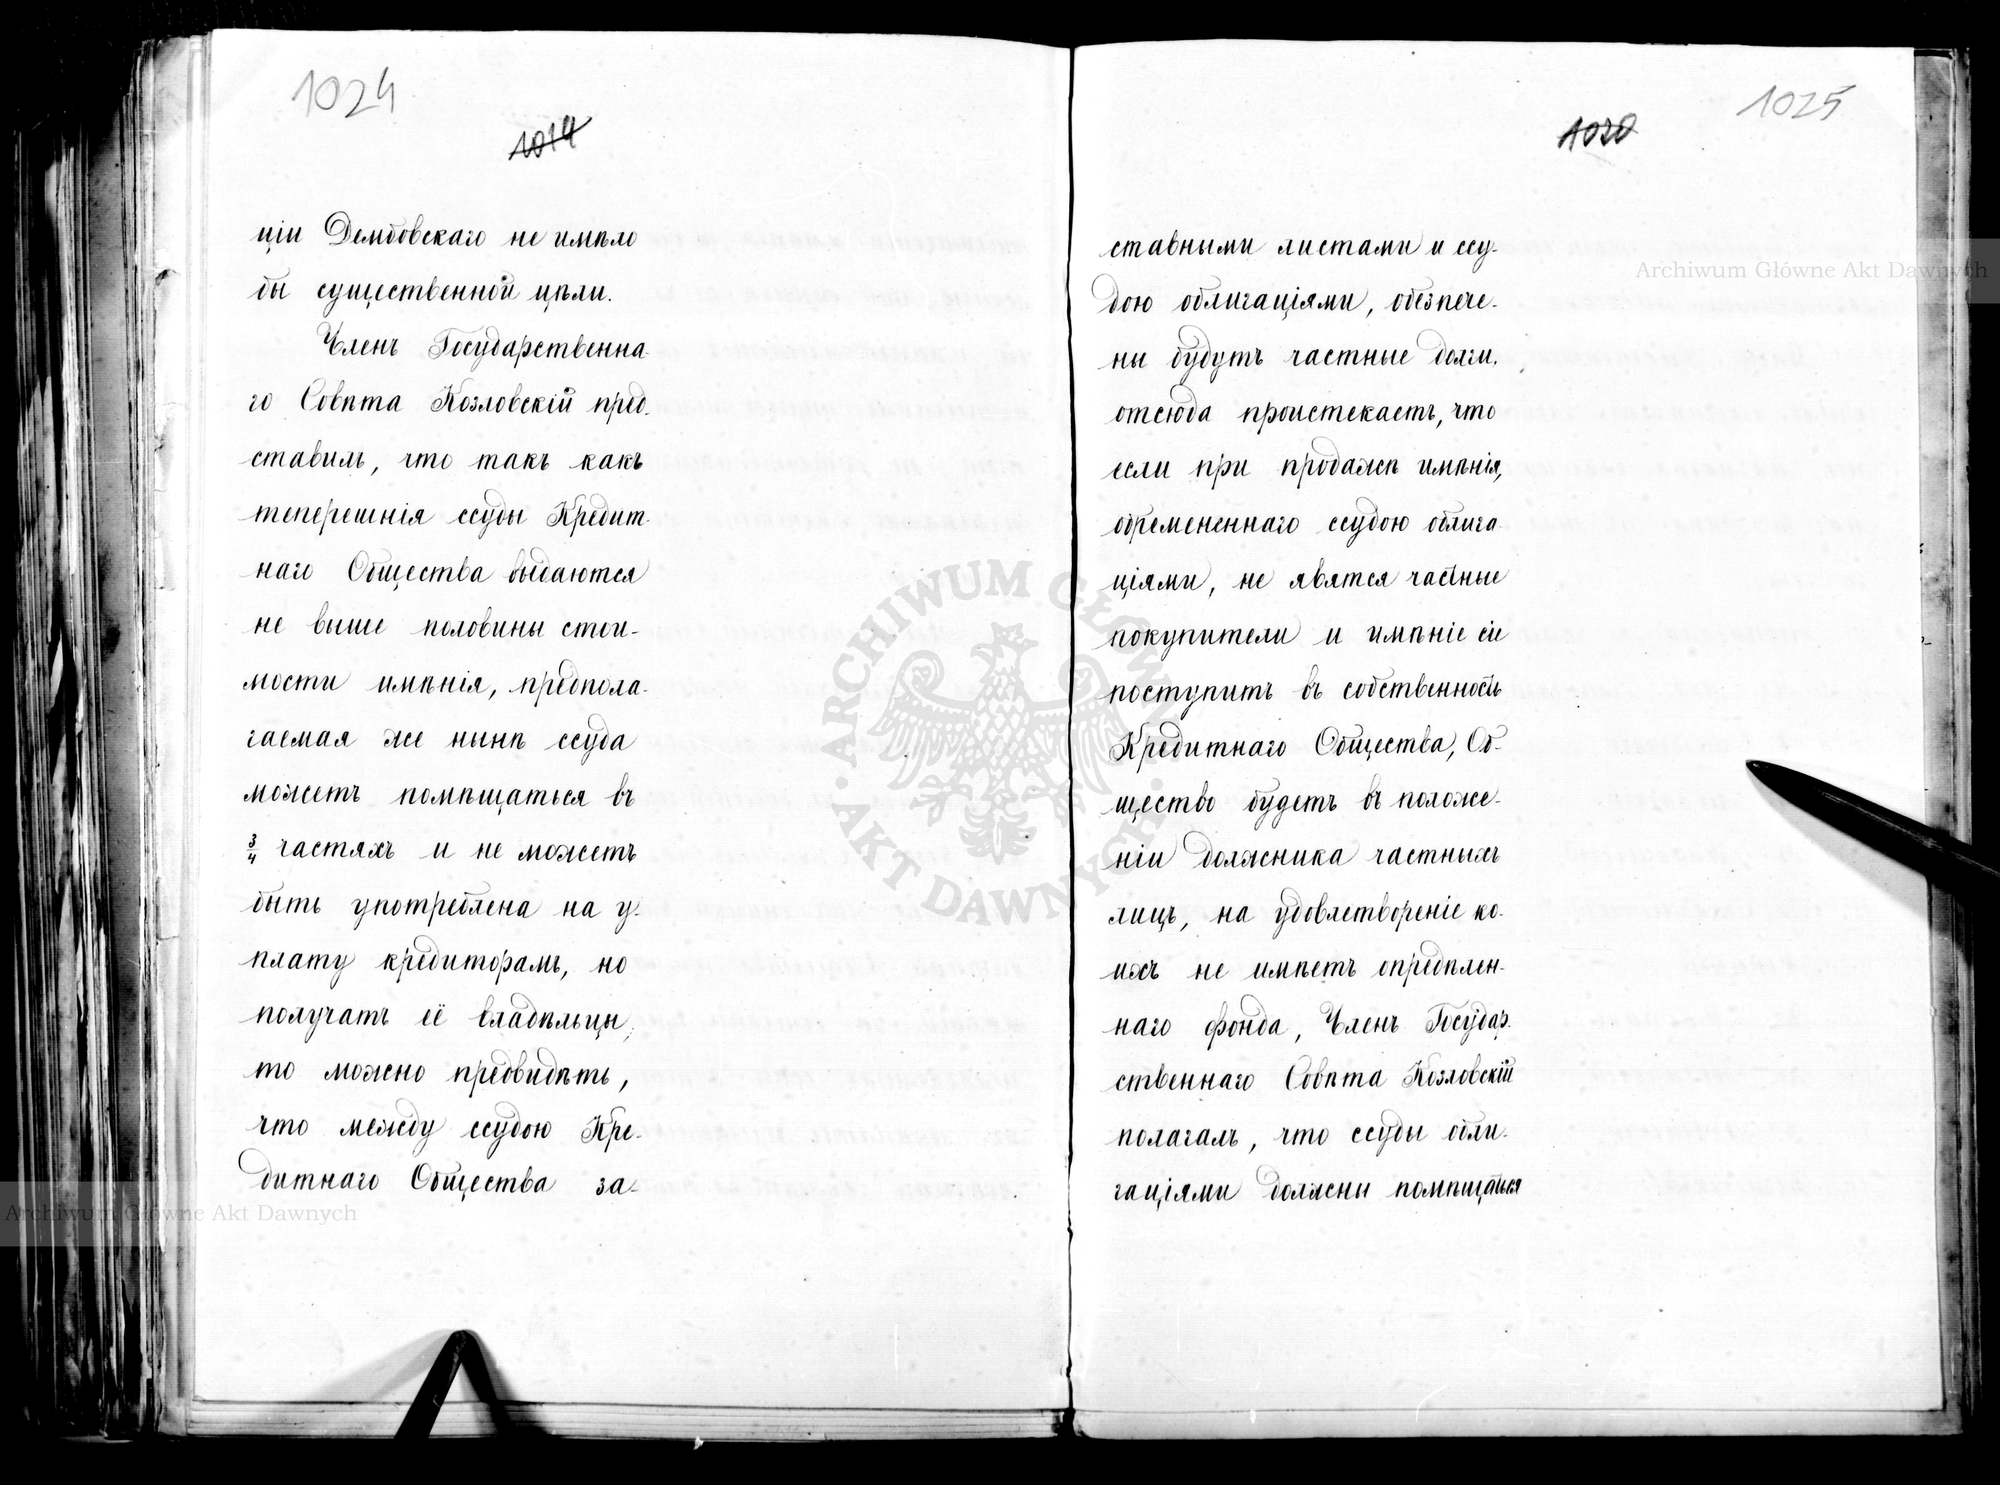 1024
1014
ціи Дембовскаго не имѣло
бы существенной цѣли.
Членъ Государственна-
го Совѣта Козловскій пред-
ставилъ, что такъ какъ
теперешнія ссуды Кредит-
наго Общества выдаются
не выше половины стои-
мости имѣнія, предпола-
гаемая же нынѣ ссуда
можетъ помѣщаться въ
3/4 частяхъ и не можетъ
быть употреблена на у-
плату кредиторамъ, но
получатъ её владѣльцы,
то можно предвидѣть,
что между ссудою Кре-
дитнаго Общества за-
1025
1020
ставными листами и ссу-
дою облигаціями, обезпече-
ны будутъ частные долги,
отсюда проистекаетъ, что
если при продажѣ имѣнія,
обремененнаго ссудою облига-
ціями, не явятся частные
покупители и имѣніе сіе
поступитъ въ собственность
Кредитнаго Общества, Об-
щество будетъ въ положе-
ніи должника частныхъ
лицъ, на удовлетвореніе ко-
ихъ не имѣетъ опредѣлен-
наго фонда, Членъ Государ-
ственнаго Совѣта Козловскій
полагалъ, что ссуды обли-
гаціями должны помѣщаться
Archiwum Główne Akt Dawnych
ARCHIWUM GŁÓWNE
AKT DAWNYCH
Archiwum Główne Akt Dawnych